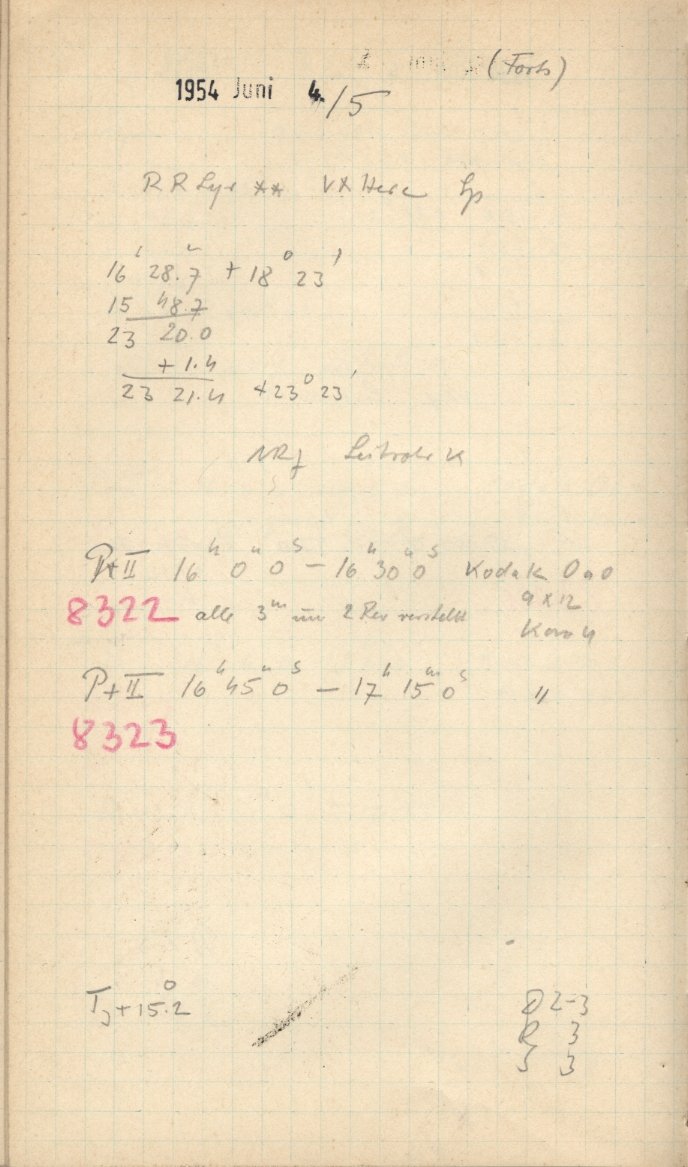 (Forts)
1954 Juni 4./5
RR Lyr ** VX Herc Sp
16ʰ 28.7ᵐ + 18° 23'
15 48.7
23 20.0
+ 1.4
23 21.4 + 23° 23'
Leitrohr K
P+II 16ʰ 0ᵐ 0ˢ — 16ʰ 30ᵐ 0ˢ Kodak OaO
9 x 12
8322 alle 3ᵐ um 2 Rev verstellt
P+II 16ʰ 45ᵐ 0ˢ — 17ʰ 15ᵐ 0ˢ "
8323
T + 15.2°
D 2-3
R 3
S 3